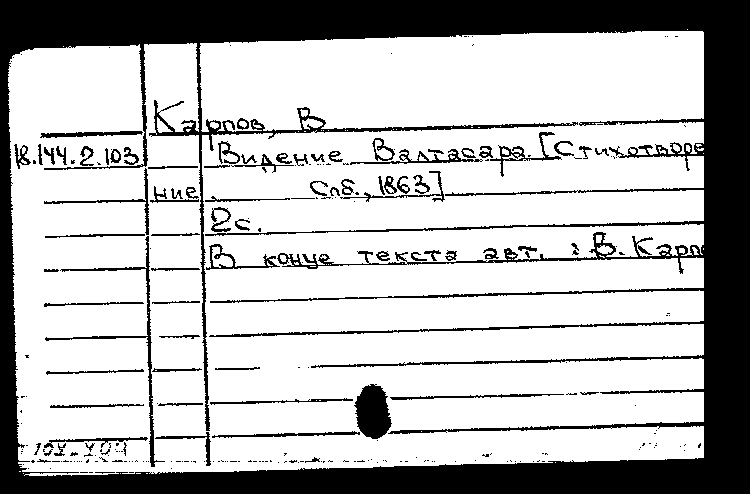 Карпов, В
18.144.2.103 Видение Валтасара. [Стихотворе
ние. Спб., 1863]
2с.
В конце текста авт. : В. Карпо